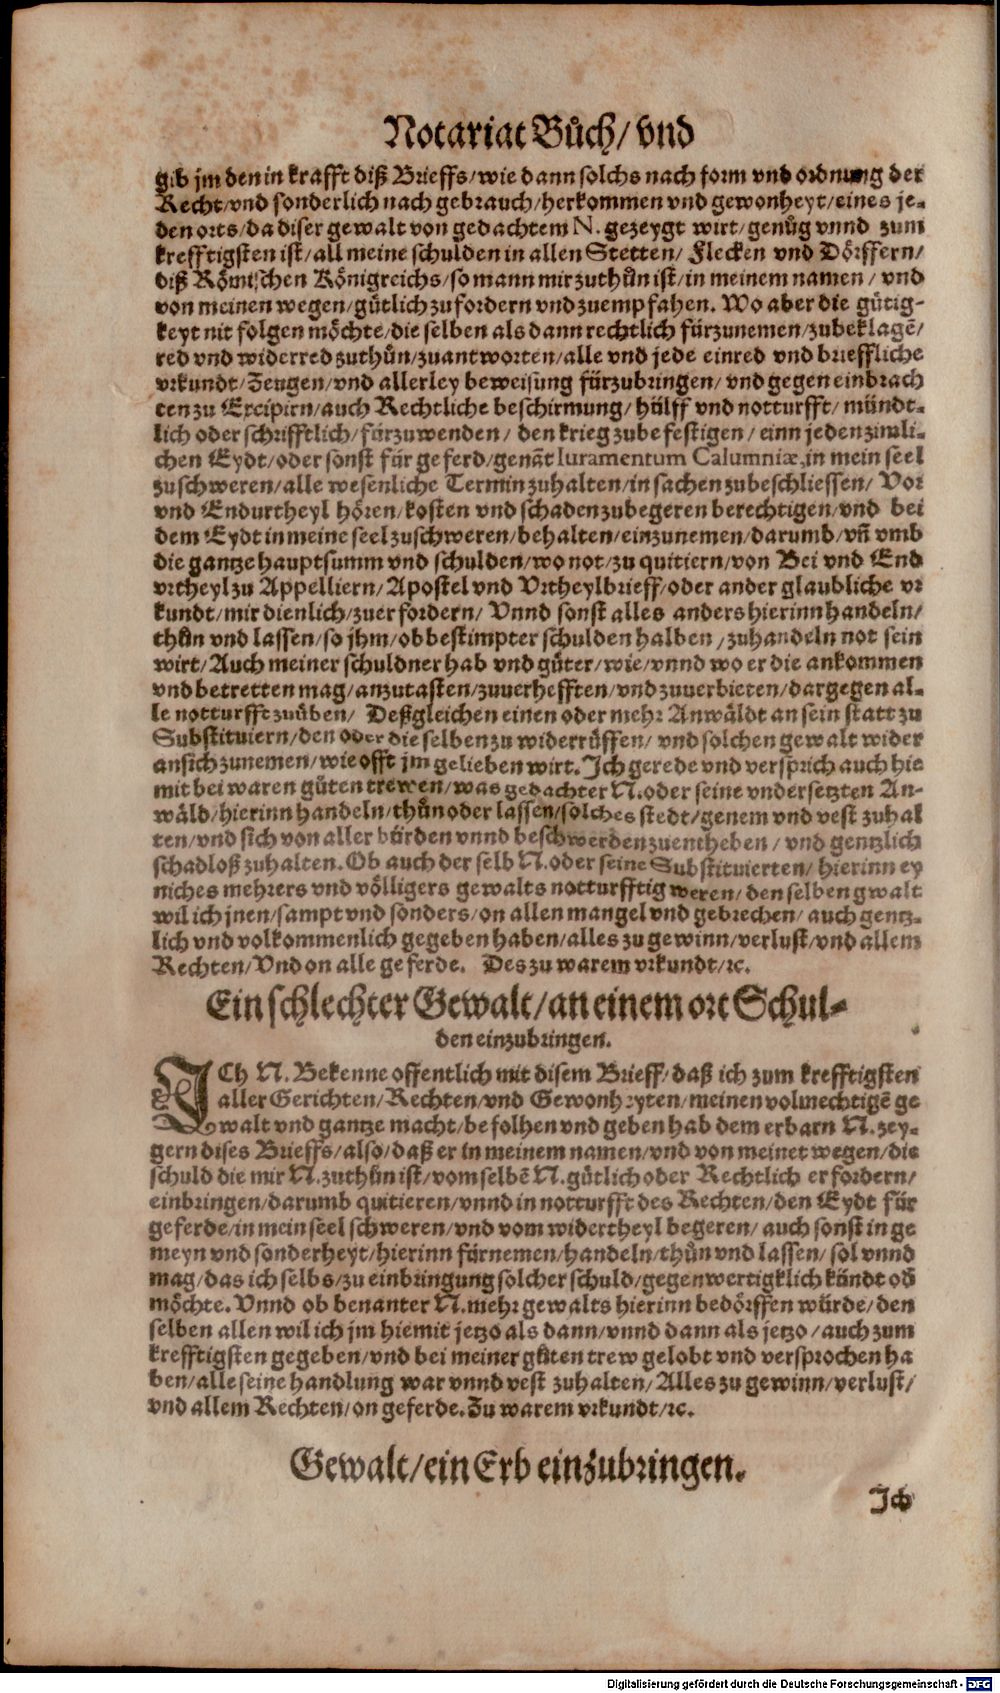 Notariat Bůch/ vnd
gib jm den in krafft diß Brieffs/wie dann solchs nach form vnd ordnung der
Recht/vnd sonderlich nach gebrauch/herkommen vnd gewonheyt/eines je-
den orts/da diser gewalt von gedachtem N. gezeygt wirt/genůg vnnd zum
krefftigsten ist/all meine schulden in allen Stetten/ Flecken vnd Dörffern/
diß Römischen Königreichs/so mann mir zuthůn ist/in meinem namen/ vnd
von meinen wegen/gütlich zufordern vnd zuempfahen. Wo aber die gütig-
keyt nit folgen möchte/die selben als dann rechtlich fürzunemen/zubeklagẽ/
red vnd widerred zuthůn/zuantworten/alle vnd jede einred vnd brieffliche
vrkundt/Zeugen/vnd allerley beweisung fürzubringen/ vnd gegen einbrach
ten zu Excipirn/auch Rechtliche beschirmung/ hülff vnd notturfft/ mündt-
lich oder schrifftlich/fürzuwenden/ den krieg zubefestigen/ einn jeden zimli-
chen Eydt/oder sonst für geferd/genãt Iuramentum Calumniæ, in mein seel
zuschweren/alle wesenliche Termin zuhalten/in sachen zubeschliessen/ Vor
vnd Endurtheyl hören/kosten vnd schaden zubegeren berechtigen/vnd bei
dem Eydt in meine seel zuschweren/behalten/einzunemen/darumb/vñ vmb
die gantze hauptsumm vnd schulden/wo not/zu quitiern/von Bei vnd End
vrtheyl zu Appelliern/Apostel vnd Vrtheylbrieff/oder ander glaubliche vr
kundt/mir dienlich/zuerfordern/ Vnnd sonst alles anders hierinn handeln/
thůn vnd lassen/so jhm/ob bestimpter schulden halben/zuhandeln not sein
wirt/Auch meiner schuldner hab vnd güter/wie/vnnd wo er die ankommen
vnd betretten mag/anzutasten/zuuerhefften/vnd zuuerbieten/dargegen al-
le notturfft zuüben/ Deßgleichen einen oder mehr Anwäldt an sein statt zu
Substituiern/den oder die selben zu widerrüffen/ vnd solchen gewalt wider
an sich zunemen/wie offt jm gelieben wirt. Ich gerede vnd versprich auch hie
mit bei waren gůten trewen/was gedachter N. oder seine vndersetzten An-
wäld/hierinn handeln/thůn oder lassen/solches stedt/genem vnd vest zuhal
ten/vnd sich von aller bürden vnnd beschwerden zuentheben/ vnd gentzlich
schadloß zuhalten. Ob auch der selb N. oder seine Substituierten/ hierinn ey
niches mehrers vnd völligers gewalts notturfftig weren/ den selben gwalt
wil ich jnen/sampt vnd sonders/on allen mangel vnd gebrechen/ auch gentz-
lich vnd volkommenlich gegeben haben/alles zu gewinn/verlust/vnd allem
Rechten/Vnd on alle geferde. Des zu warem vrkundt/ꝛc.
Ein schlechter Gewalt/an einem ort Schul-
den einzubringen.
ICh N. Bekenne offentlich mit disem Brieff/daß ich zum krefftigsten
aller Gerichten/Rechten/vnd Gewonheyten/meinen volmechtigẽ ge
walt vnd gantze macht/befolhen vnd geben hab dem erbarn N. zey-
gern dises Brieffs/also/daß er in meinem namen/vnd von meinet wegen/die
schuld die mir N. zuthůn ist/vom selbẽ N. gütlich oder Rechtlich erfordern/
einbringen/darumb quitieren/vnnd in notturfft des Rechten/den Eydt für
geferde/in mein seel schweren/vnd vom widertheyl begeren/ auch sonst in ge
meyn vnd sonderheyt/hierinn fürnemen/handeln/thůn vnd lassen/ sol vnnd
mag/das ich selbs/zu einbringung solcher schuld/gegenwertigklich kündt oď
möchte. Vnnd ob benanter N. mehr gewalts hierinn bedörffen würde/den
selben allen wil ich jm hiemit jetzo als dann/vnnd dann als jetzo/auch zum
krefftigsten gegeben/vnd bei meiner gůten trew gelobt vnd versprochen ha
ben/alle seine handlung war vnnd vest zuhalten/Alles zu gewinn/verlust/
vnd allem Rechten/on geferde. Zu warem vrkundt/ꝛc.
Gewalt/ein Erb einzubringen.
Ich
Digitalisierung gefördert durch die Deutsche Forschungsgemeinschaft - DFG